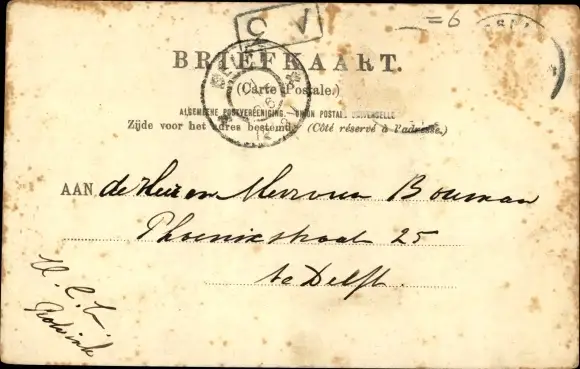 =6
BRIEFKAART.
(Carte Postale.)
ALGEMEENE POSTVEREENIGING.—UNION POSTALE UNIVERSELLE
Zijde voor het adres bestemd. (Côté réservé à l'adresse.)
AAN de Heer en Mevrouw Bouman
Phoenixstraat 25
te Delft.